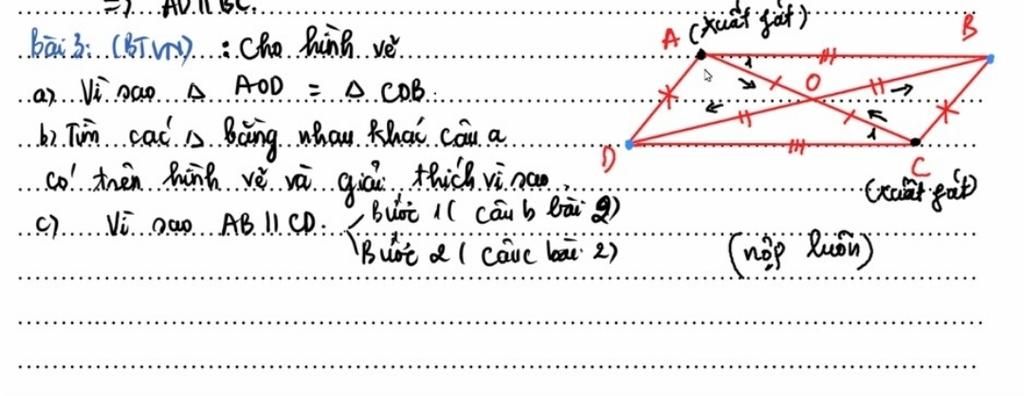 => AD // BC.
bài 3: (BTVN) : Cho hình vẽ
a) Vì sao Δ AOD = Δ COB.
b) Tìm các Δ bằng nhau khác câu a
có trên hình vẽ và giải thích vì sao.
c) Vì sao AB // CD.
Bước 1 ( câu b bài 2)
Bước 2 ( câu c bài 2)
(nộp luôn)
A (xuất phát)
B
1
O
D
1
C
(xuất phát)